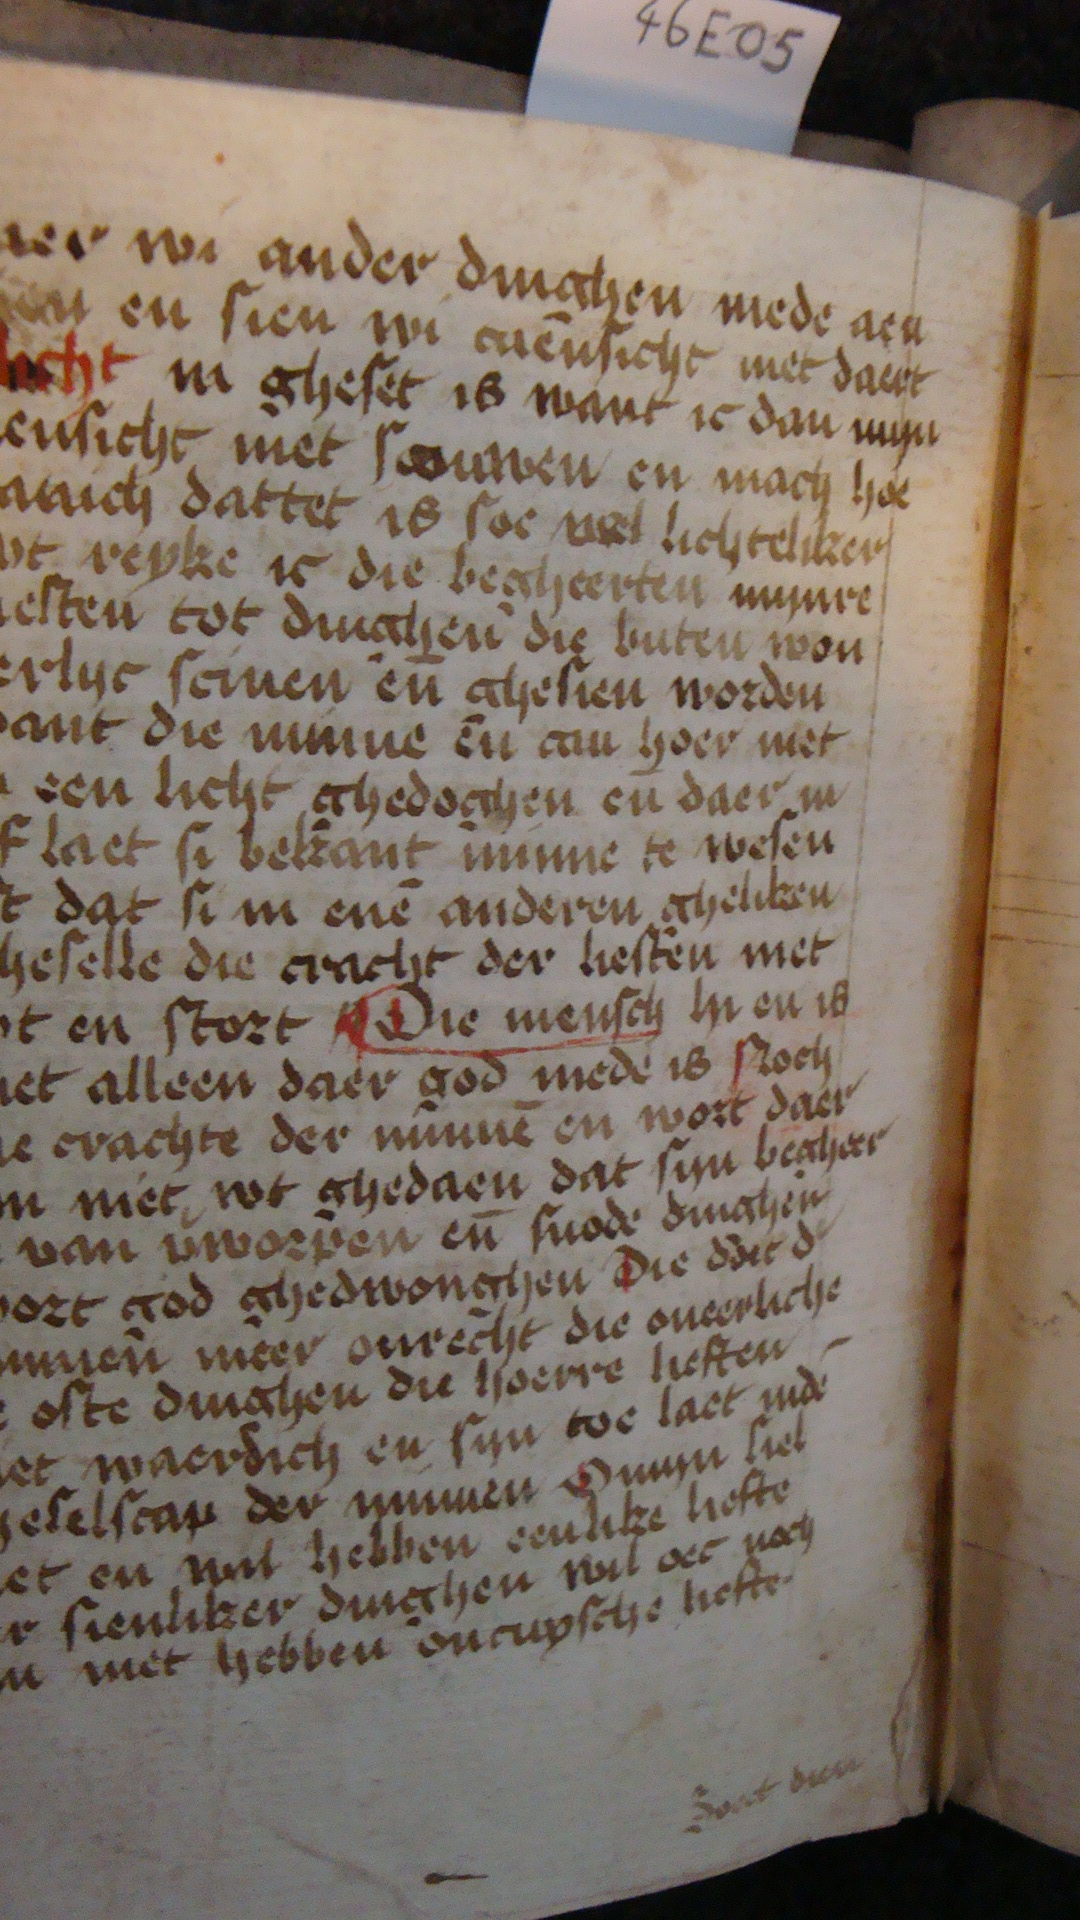 46E05
wi ander dinghen mede aen
en sien wi caēsicht niet daert
in gheset is want ic dan mijn
ensicht niet scouwen en mach hoe
danich dattet is soe wel lichteliker
wt reyke ic die begheerten mijnre
liesten tot dinghen die buten won
erlijc scinen eñ ghesien worden
want die minne eñ can hoer niet
een licht ghedoghen eñ daer in
laet si bekant minne te wesen
dat si in enē anderen gheliken
gheselle die cracht der liesten niet
en stort Die mensch hi en is
niet alleen daer god mede is Noch
crachte der minnē en wort daer
niet wt ghedaen dat sijn begheer
van vworpen eñ snode dinghen
wort god ghedwonghen Die
meer onrecht die oneerliche
ofte dinghen die hoerre lieften
niet waerdich en sijn toe laet inde
gheselscap der minnen O mijn siel
en wil hebben eenlike liefte
sienliker dinghen wil oec noch
niet hebben oncuysche liefte